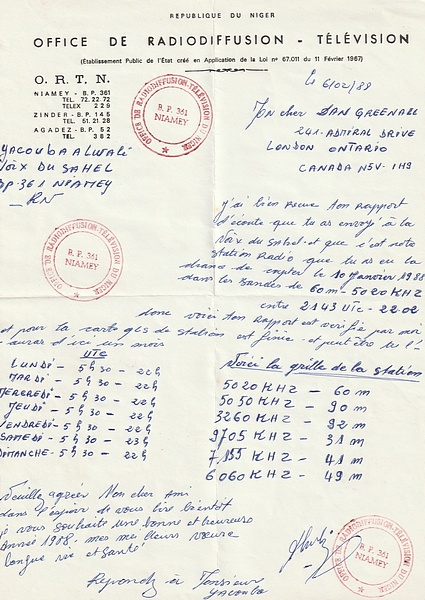 REPUBLIQUE DU NIGER
OFFICE DE RADIODIFFUSION - TÉLÉVISION
(Établissement Public de l'État créé en Application de la Loi nº 67.011 du 11 Février 1967)
O. R. T. N.
NIAMEY - B. P. 361
TEL. 72.22.72
TELEX 229
ZINDER - B.P. 145
TEL. 51.21.28
AGADEZ - B.P. 52
TEL. 382
OFFICE DE RADIODIFFUSION-TÉLÉVISION DU NIGER
B. P. 361
NIAMEY
Le 6/02/88
Mon cher DAN GREENALL
241-ADMIRAL DRIVE
LONDON ONTARIO
CANADA N5V-1H9
YACOUBA ALWALI
VOIX DU SAHEL
BP-361 NIAMEY
RN
j'ai bien reçue ton rapport
d'écoute que tu as envoyé à la
Voix du Sahel et que c'est notre
station Radio que tu as eu la
chance de capter le 10 Janvier 1988
dans les bandes de 60m-5020KHZ
entre 2143 UTC-2202
OFFICE DE RADIODIFFUSION-TÉLÉVISION DU NIGER
B. P. 361
NIAMEY
donc voici ton rapport est verifié par moi
et pour la carte QLS de station est finie - et peut être tu l'
auras d'ici un mois
UTC
LUNDI - 5h30 - 22h
MARDI - 5h30 - 22h
MERCREDI - 5h30 - 22h
JEUDI - 5h30 - 22h
VENDREDI - 5h30 - 22h
SAMEDI - 5h30 - 23h
DIMANCHE - 5h30 - 22h
Voici la grille de la station
5020 KHZ - 60 m
5050 KHZ - 90 m
3260 KHZ - 92 m
9705 KHZ - 31 m
7155 KHZ - 41 m
6060 KHZ - 49 m
Veuille agréer Mon cher ami
dans l'espoir de vous lire bientôt
je vous souhaite une bonne et heureuse
Année 1988 - mes meilleurs vœux
longue vie et santé
Repondez à Monsieur
Yacouba
OFFICE DE RADIODIFFUSION-TÉLÉVISION DU NIGER
B. P. 361
NIAMEY